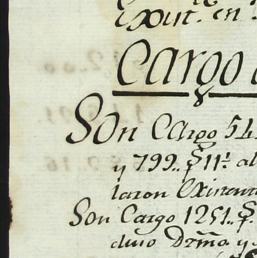 Exist.. en
Cargo
Son Cargo 54
y 799.. $11.. al
laron Existen
Son Cargo 1251.. $.
duio Dzma y